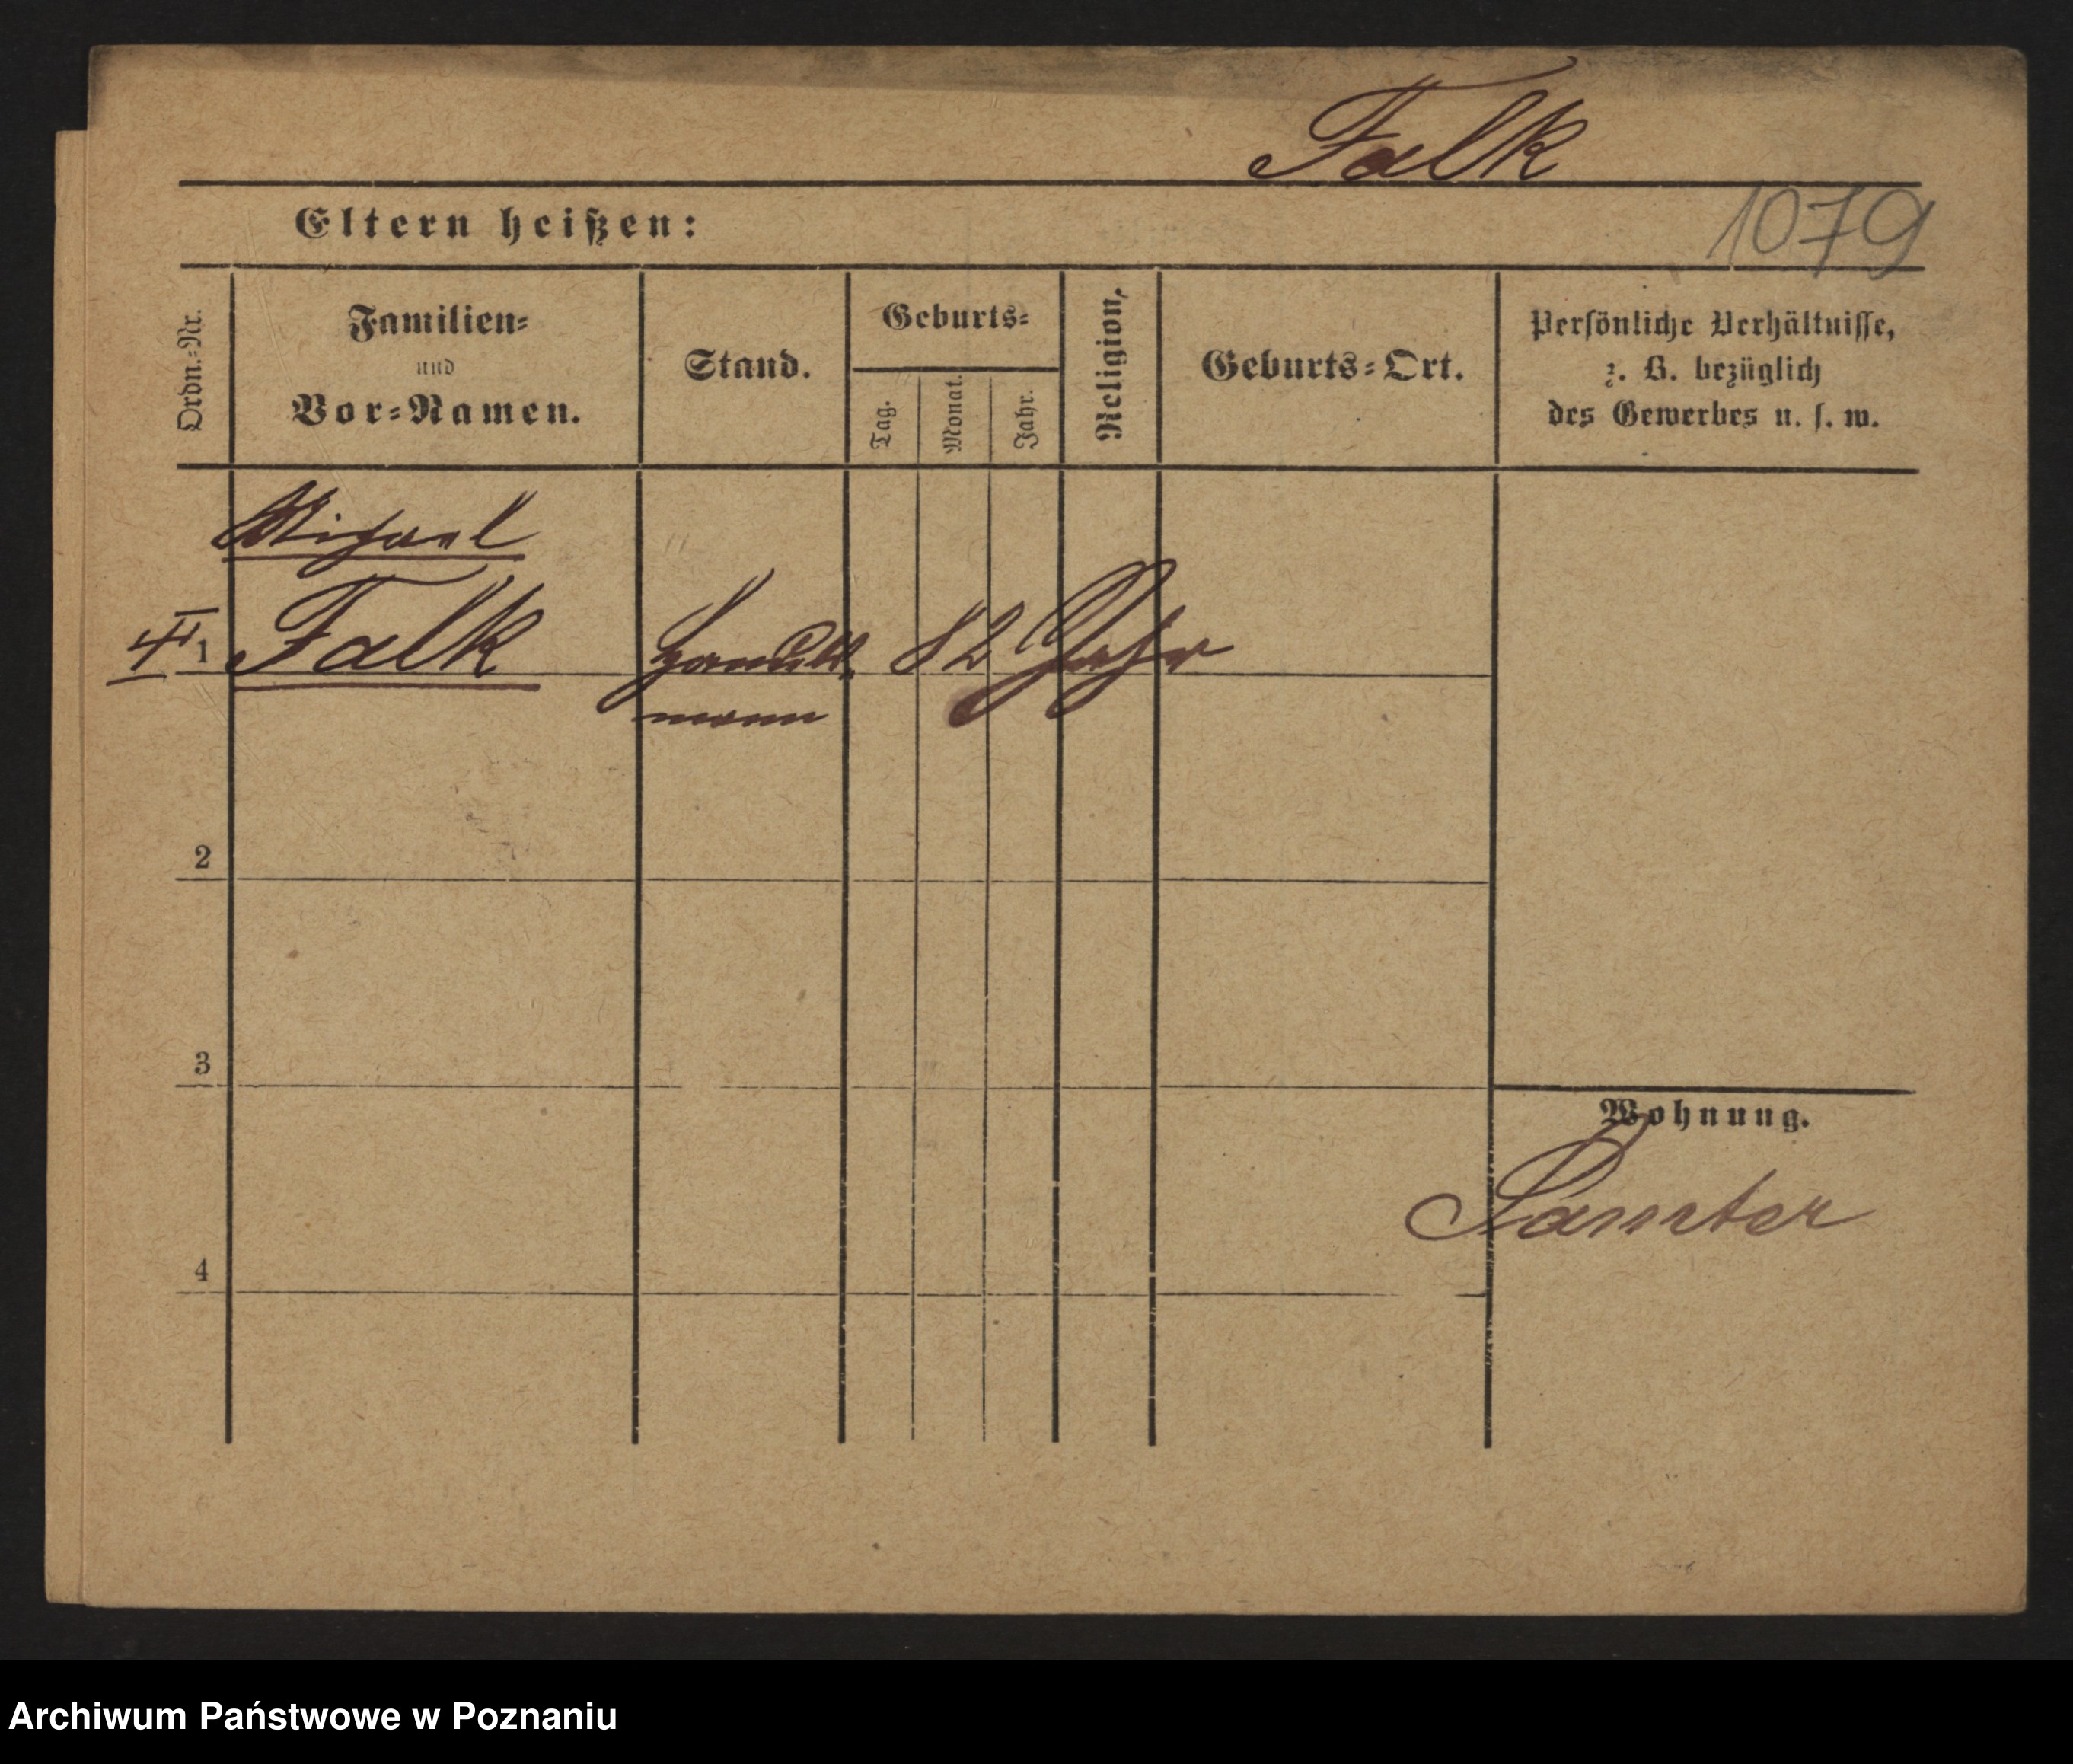 Falk
1079
Eltern heißen:
Ordn.-Nr.
Familien-
und
Vor-Namen.
Stand.
Geburts-
Tag.
Monat.
Jahr.
Religion.
Geburts-Ort.
Persönliche Verhältnisse,
z. B. bezüglich
des Gewerbes u. s. w.
Michael
1 Falk Handels- 82 Jahr
mann
2
3
Wohnung.
Samter
4
Archiwum Państwowe w Poznaniu